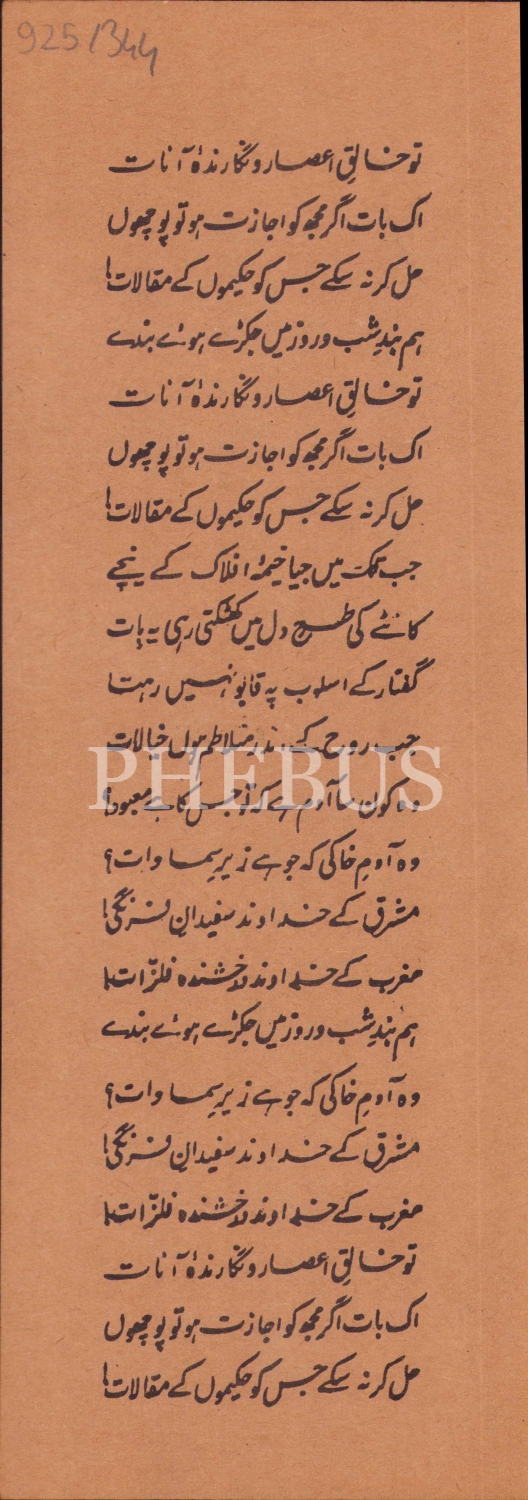 925/344
تو خالقِ اعصار و نگارندۂ آنات
اک بات اگر مجھ کو اجازت ہو تو پوچھوں
حل کر نہ سکے جس کو حکیموں کے مقالات!
ہم بندِ شب و روز میں جکڑے ہوئے بندے
تو خالقِ اعصار و نگارندۂ آنات
اک بات اگر مجھ کو اجازت ہو تو پوچھوں
حل کر نہ سکے جس کو حکیموں کے مقالات!
جب تک میں جیا خیمۂ افلاک کے نیچے
کانٹے کی طرح دل میں کھٹکتی رہی یہ بات
گفتار کے اسلوب پہ قابو نہیں رہتا
جب روح کے اندر متلاطم ہوں خیالات
وہ کون سا آدم ہے کہ تو جس کا ہے معبود؟
وہ آدمِ خاکی کہ جو ہے زیرِ سماوات؟
مشرق کے خداوند سفیدانِ فرنگی!
مغرب کے خداوند درخشندہ فلزّات!
ہم بندِ شب و روز میں جکڑے ہوئے بندے
وہ آدمِ خاکی کہ جو ہے زیرِ سماوات؟
مشرق کے خداوند سفیدانِ فرنگی!
مغرب کے خداوند درخشندہ فلزّات!
تو خالقِ اعصار و نگارندۂ آنات
اک بات اگر مجھ کو اجازت ہو تو پوچھوں
حل کر نہ سکے جس کو حکیموں کے مقالات!
PHEBUS